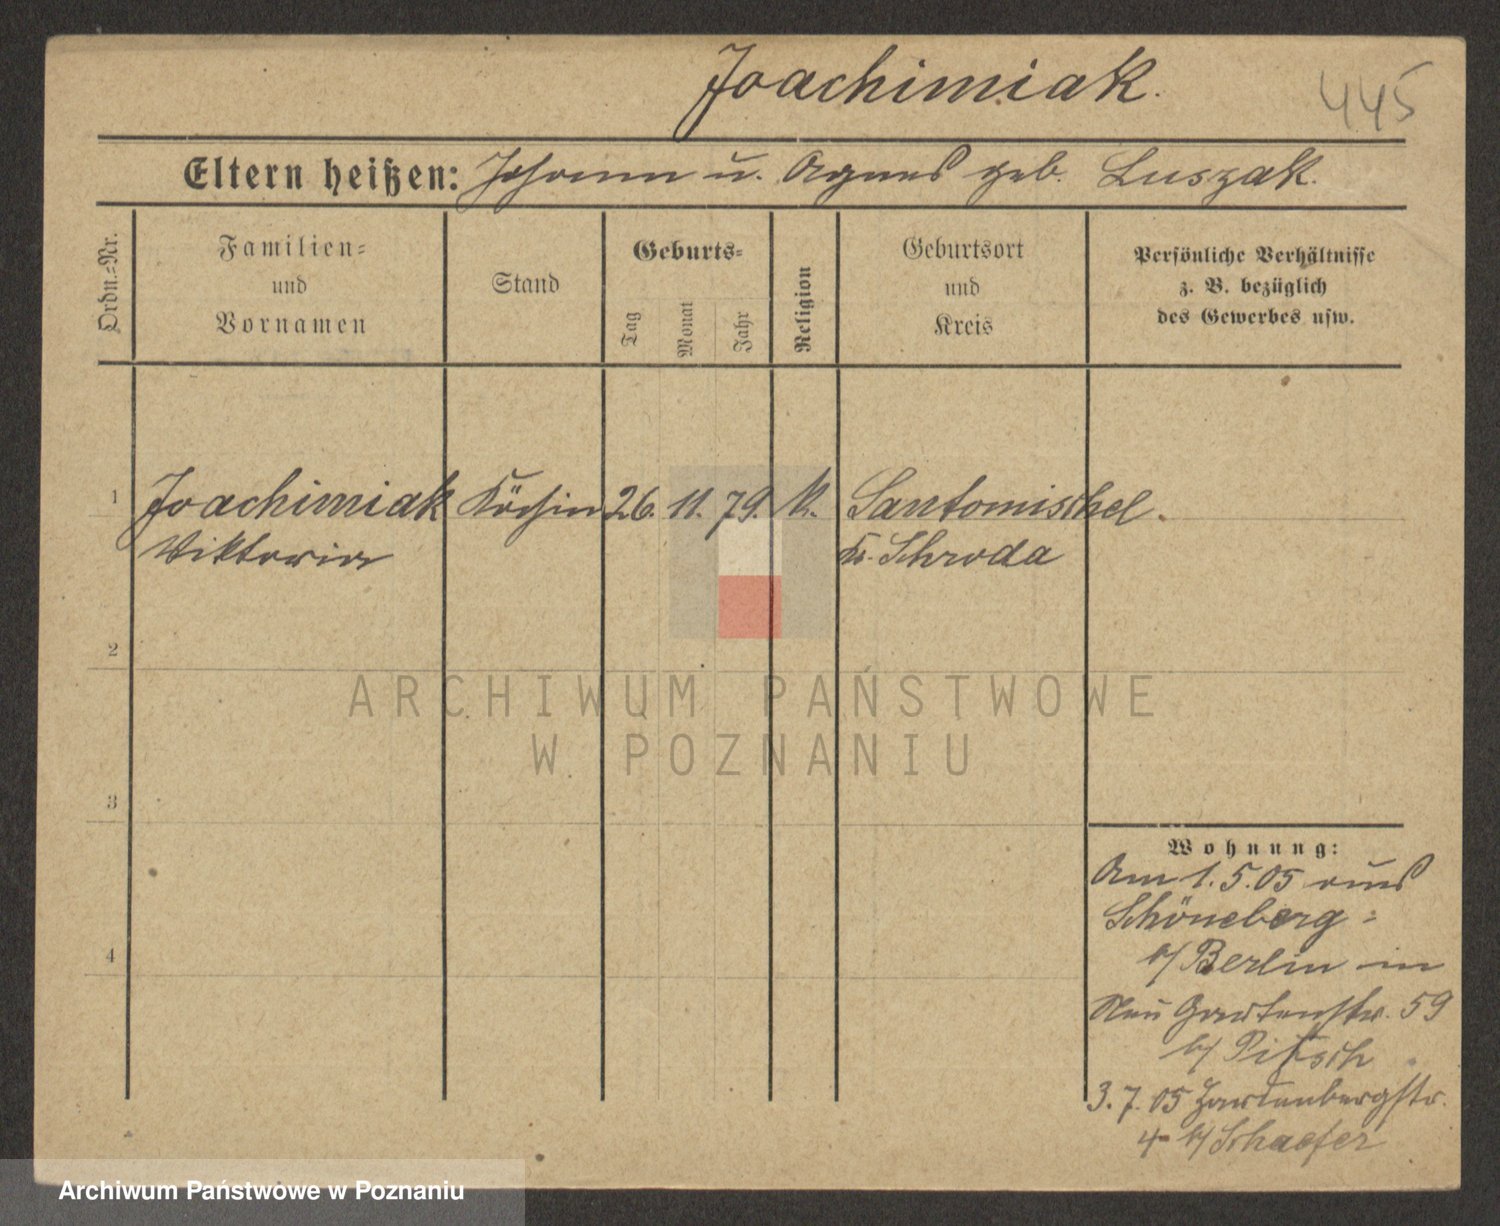 Joachimiak.
445
Eltern heißen: Johann u. Agnes geb. Luszak.
Ordn.=Nr.
Familien=
und
Vornamen
Stand
Geburts=
Tag
Monat
Jahr
Religion
Geburtsort
und
Kreis
Persönliche Verhältnisse
z. B. bezüglich
des Gewerbes usw.
1 Joachimiak Köchin 26. 11. 79. k. Santomischel.
Viktoria Kr. Schroda
2
ARCHIWUM PAŃSTWOWE
W POZNANIU
3
4
Wohnung:
Am 1.5.05 aus
Schöneberg =
b/ Berlin in
Neu Gartenstr. 59
b/ Pitsch
3. 7. 05 
4 b/ Schaefer
Archiwum Państwowe w Poznaniu